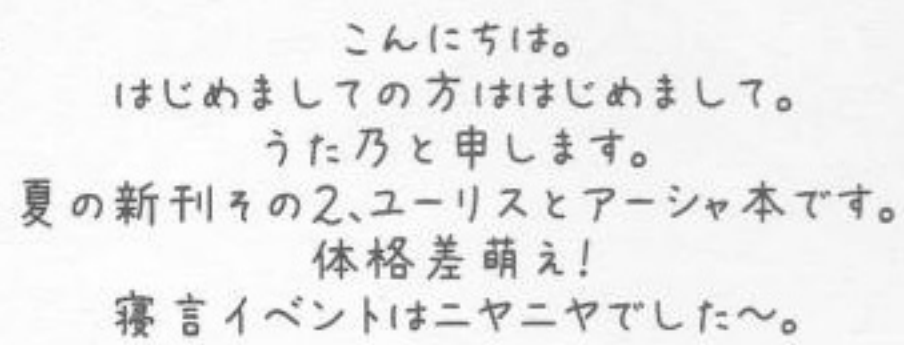 こんにちは。
はじめましての方ははじめまして。
うた乃と申します。
夏の新刊その2、ユーリスとアーシャ本です。
体格差萌え!
寝言イベントはニヤニヤでした〜。